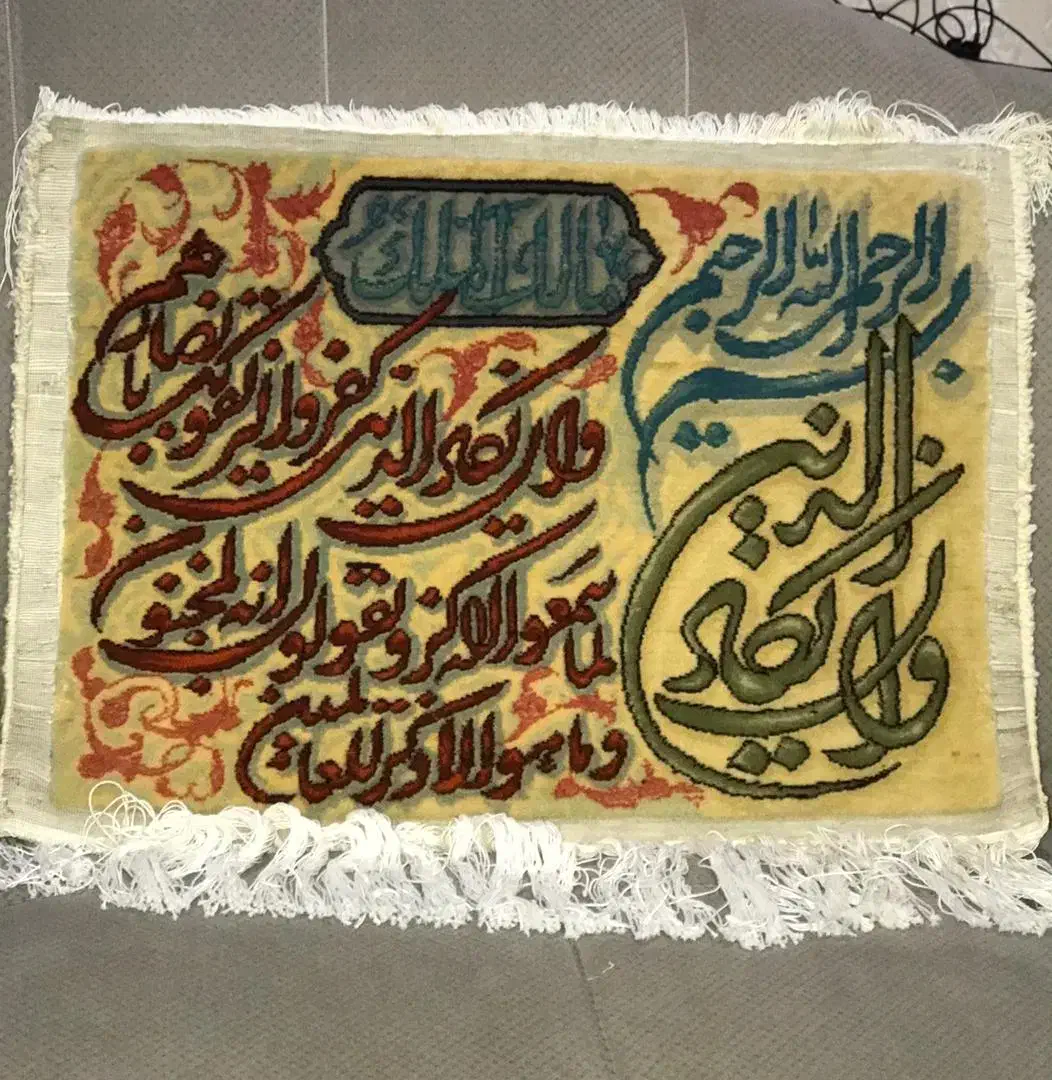 بسم الله الرحمن الرحيم
وان یکاد الذین
یا مالک الملک
وان یکاد الذین کفروا لیزلقونک بابصارهم
لما سمعوا الذکر و یقولون انه لمجنون
و ما هو الا ذکر للعالمین